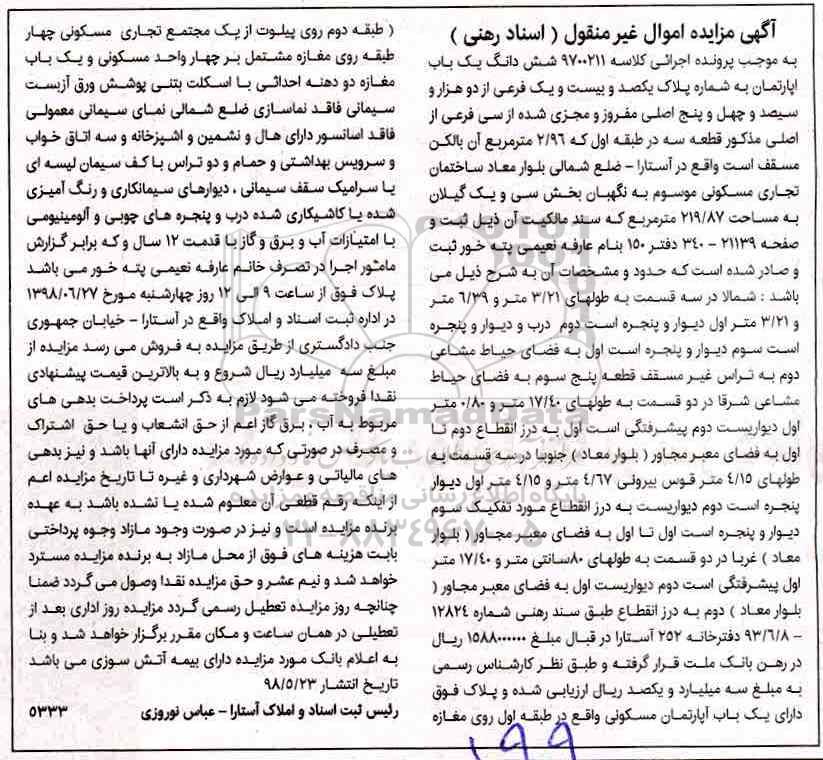 آگهی مزایده اموال غیر منقول ( اسناد رهنی )
به موجب پرونده اجرائی کلاسه ۹۷۰۰۲۱۱ شش دانگ یک باب
اپارتمان به شماره پلاک یکصد و بیست و یک فرعی از دو هزار و
سیصد و چهل و پنج اصلی مفروز و مجزی شده از سی فرعی از
اصلی مذکور قطعه سه در طبقه اول که ۲/۹۶ مترمربع آن بالکن
مسقف است واقع در آستارا - ضلع شمالی بلوار معاد ساختمان
تجاری مسکونی موسوم به نگهبان بخش سی و یک گیلان
به مساحت ۲۱۹/۸۷ مترمربع که سند مالکیت آن ذیل ثبت و
صفحه ۲۱۱۳۹ - ۳۴۰ دفتر ۱۵۰ بنام عارفه نعیمی پته خور ثبت
و صادر شده است که حدود و مشخصات آن به شرح ذیل می
باشد : شمالا در سه قسمت به طولهای ۳/۲۱ متر و ۶/۳۹ متر
و ۳/۲۱ متر اول دیوار و پنجره است دوم درب و دیوار و پنجره
است سوم دیوار و پنجره است اول به فضای حیاط مشاعی
دوم به تراس غیر مسقف قطعه پنج سوم به فضای حیاط
مشاعی شرقا در دو قسمت به طولهای ۱۷/۴۰ متر و ۰/۸۰ متر
اول دیواریست دوم پیشرفتگی است اول به درز انقطاع دوم تا
اول به فضای معبر مجاور ( بلوار معاد ) جنوبا در سه قسمت به
طولهای ۴/۱۵ متر قوس بیرونی ۴/۶۷ متر و ۴/۱۵ متر اول دیوار
پنجره است دوم دیواریست به درز انقطاع مورد تفکیک سوم
دیوار و پنجره است اول تا اول به فضای معبر مجاور ( بلوار
معاد ) غربا در دو قسمت به طولهای ۸۰سانتی متر و ۱۷/۴۰ متر
اول پیشرفتگی است دوم دیواریست اول به فضای معبر مجاور (
بلوار معاد ) دوم به درز انقطاع طبق سند رهنی شماره ۱۲۸۲۴
- ۹۳/۶/۸ دفترخانه ۲۵۲ آستارا در قبال مبلغ ۱۵۸۸۰۰۰۰۰۰ ریال
در رهن بانک ملت قرار گرفته و طبق نظر کارشناس رسمی
به مبلغ سه میلیارد و یکصد ریال ارزیابی شده و پلاک فوق
دارای یک باب آپارتمان مسکونی واقع در طبقه اول روی مغازه
( طبقه دوم روی پیلوت از یک مجتمع تجاری مسکونی چهار
طبقه روی مغازه مشتمل بر چهار واحد مسکونی و یک باب
مغازه دو دهنه احداثی با اسکلت بتنی پوشش ورق آزبست
سیمانی فاقد نماسازی ضلع شمالی نمای سیمانی معمولی
فاقد اسانسور دارای هال و نشمین و اشپزخانه و سه اتاق خواب
و سرویس بهداشتی و حمام و دو تراس با کف سیمان لیسه ای
یا سرامیک سقف سیمانی ، دیوارهای سیمانکاری و رنگ آمیزی
شده یا کاشیکاری شده درب و پنجره های چوبی و آلومینیومی
با امتیازات آب و برق و گاز با قدمت ۱۲ سال و که برابر گزارش
مامئور اجرا در تصرف خانم عارفه نعیمی پته خور می باشد
پلاک فوق از ساعت ۹ الی ۱۲ روز چهارشنبه مورخ ۱۳۹۸/۰۶/۲۷
در اداره ثبت اسناد و املاک واقع در آستارا - خیابان جمهوری
جنب دادگستری از طریق مزایده به فروش می رسد مزایده از
مبلغ سه میلیارد ریال شروع و به بالاترین قیمت پیشنهادی
نقدا فروخته می شود لازم به ذکر است پرداخت بدهی های
مربوط به آب ، برق گاز اعم از حق انشعاب و یا حق اشتراک
و مصرف در صورتی که مورد مزایده دارای آنها باشد و نیز بدهی
های مالیاتی و عوارض شهرداری و غیره تا تاریخ مزایده اعم
از اینکه رقم قطعی آن معلوم شده یا نشده باشد به عهده
برنده مزایده است و نیز در صورت وجود مازاد وجوه پرداختی
بابت هزینه های فوق از محل مازاد به برنده مزایده مسترد
خواهد شد و نیم عشر و حق مزایده نقدا وصول می گردد ضمنا
چنانچه روز مزایده تعطیل رسمی گردد مزایده روز اداری بعد از
تعطیلی در همان ساعت و مکان مقرر برگزار خواهد شد و بنا
به اعلام بانک مورد مزایده دارای بیمه آتش سوزی می باشد
تاریخ انتشار ۹۸/۵/۲۳
رئیس ثبت اسناد و املاک آستارا - عباس نوروزی ۵۳۳۳
ParsNamadData
پایگاه اطلاع رسانی مناقصه و مزایده
۰۲۱-۸۸۳۴۹۶۷۰-۵
۱۹۹